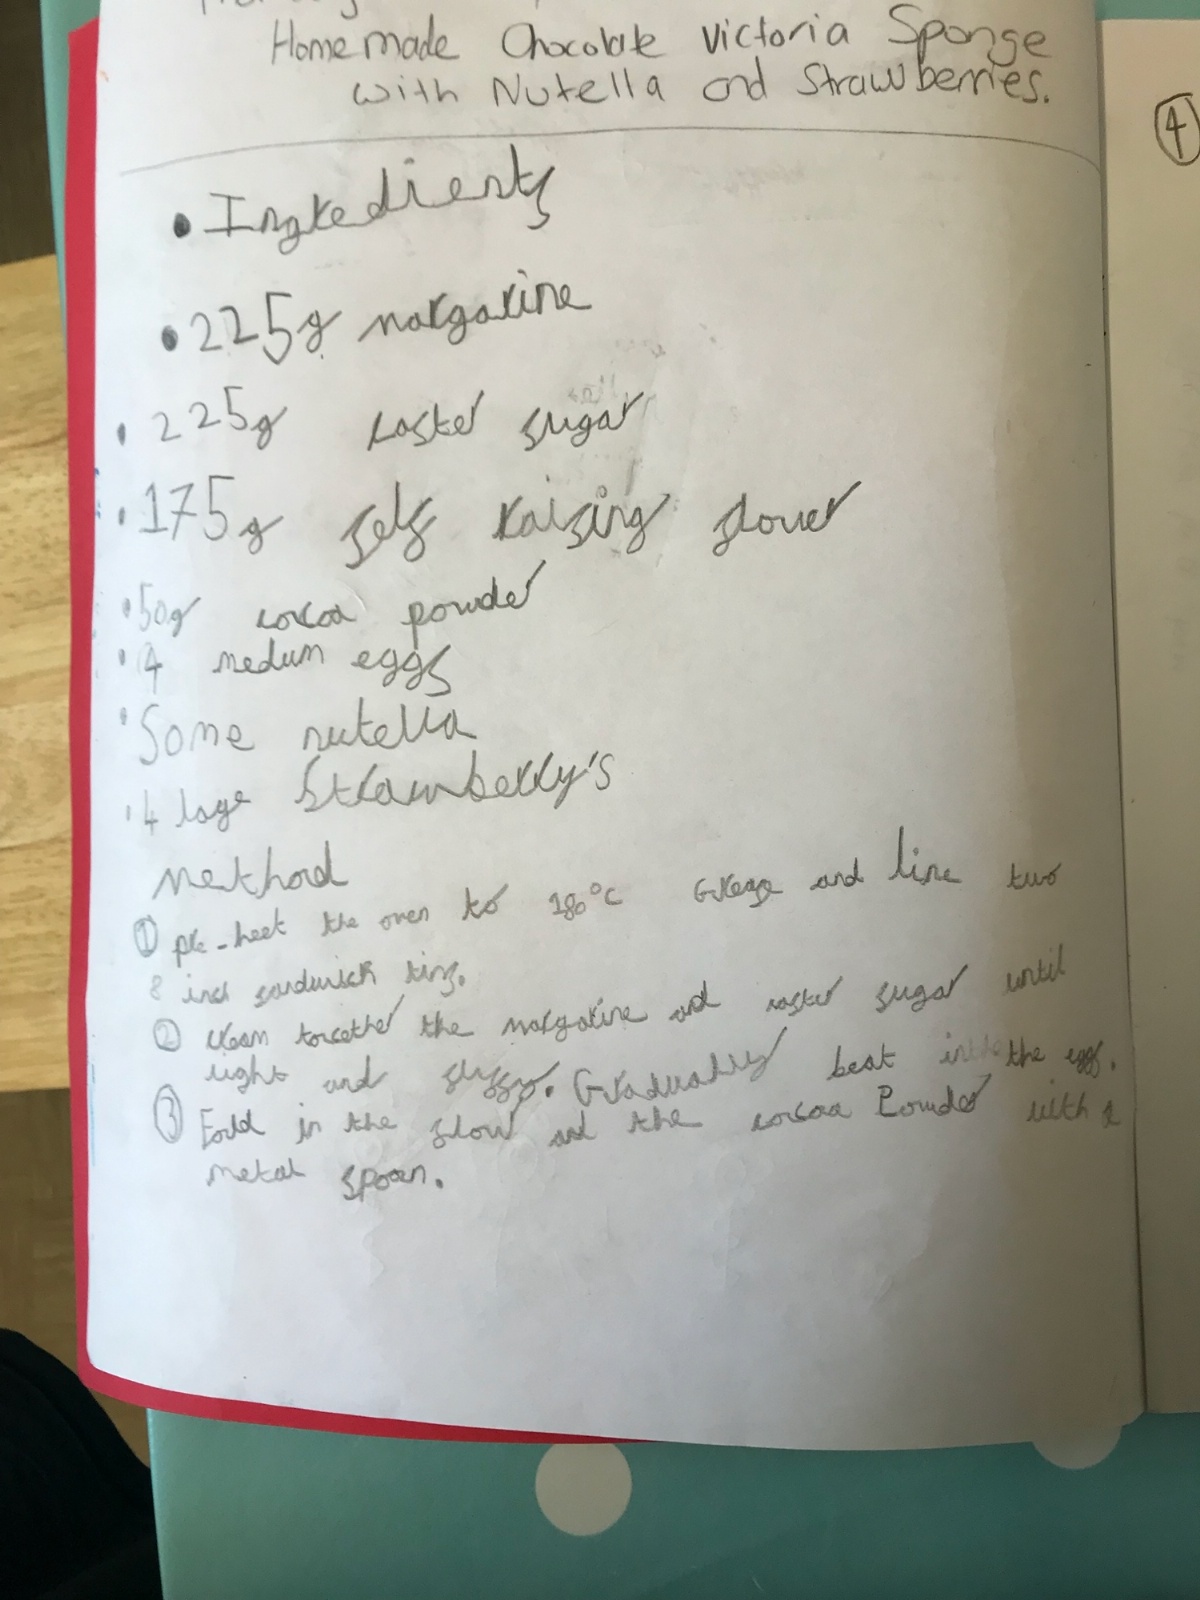 Homemade Chocolate Victoria Sponge
with Nutella and Strawberries.
• Ingredients
• 225g margarine
• 225g caster sugar
• 175g self raising flouer
• 50g cocoa powder
• 4 medum eggs
• Some nutella
• 4 lage Strawberry's
Methord
① pre-heet the oven to 180°C Grease and line two
8 inch sandwich tins.
② cream torcether the margarine and caster sugar until
light and fluffy. Gradually beat in the eggs.
③ Fould in the flour and the cocoa Powder with a
metal spoon.
④